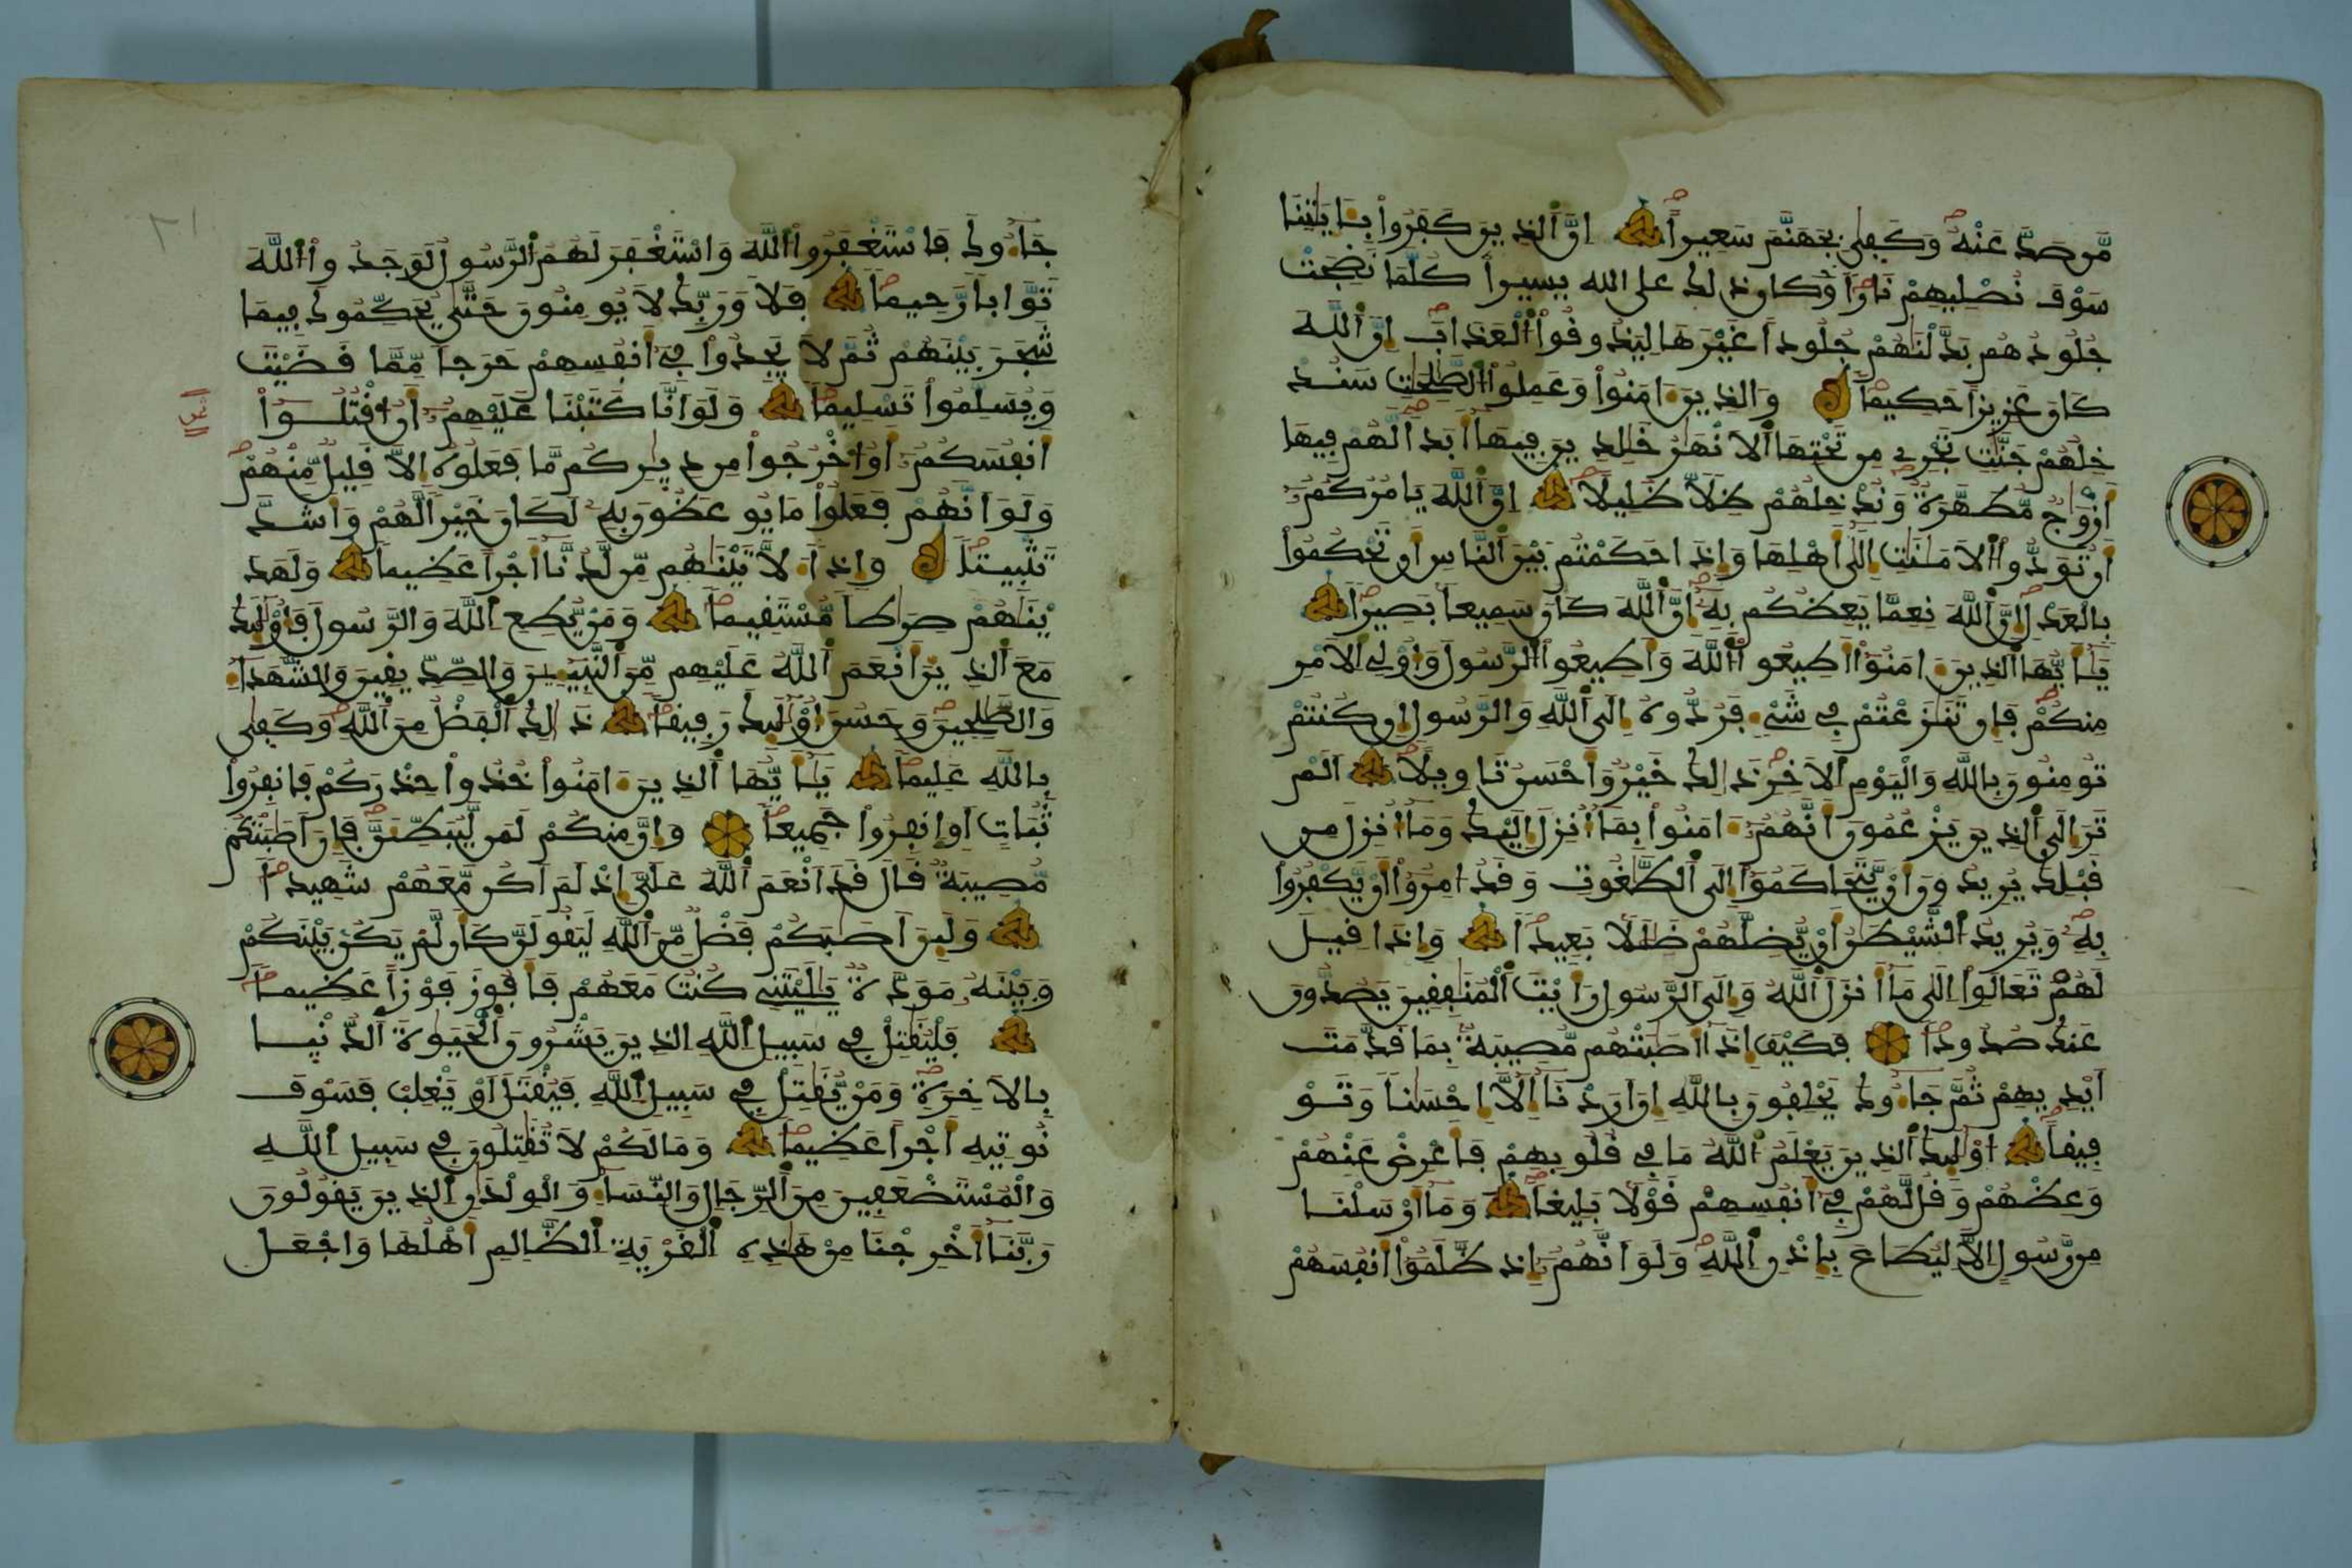 من صد عنه وكفى بجهنم سعيرا ان الذين كفروا بايتنا
سوف نصليهم نارا وكان ذلك على الله يسيرا كلما نضجت
جلودهم بدلنهم جلودا غيرها ليذوفوا العذاب ان الله
كان عزيزا حكيما والذين امنوا وعملوا الصلحت سند
خلهم جنت تجري من تحتها الانهر خلدين فيها ابدا لهم فيها
ازوج مطهرة وندخلهم ظلا ظليلا ان الله يامركم
ان تودوا الامنت الى اهلها واذا حكمتم بين الناس ان تحكموا
بالعدل ان الله نعما يعظكم به ان الله كان سميعا بصيرا
يايها الذين امنوا اطيعوا الله واطيعوا الرسول واولي الامر
منكم فان تنزعتم في شيء فردوه الى الله والرسول ان كنتم
تومنون بالله واليوم الاخر ذلك خير واحسن تاويلا الم
تر الى الذين يزعمون انهم امنوا بما انزل اليك وما انزل من
قبلك يريدون ان يتحاكموا الى الطغوت وقد امروا ان يكفروا
به ويريد الشيطن ان يضلهم ضللا بعيدا واذا قيل
لهم تعالوا الى ما انزل الله والى الرسول رايت المنفقين يصدون
عنك صدودا فكيف اذا اصبتهم مصيبة بما قدمت
ايديهم ثم جاءوك يحلفون بالله ان اردنا الا احسنا وتو
فيقا اوليك الذين يعلم الله ما في قلوبهم فاعرض عنهم
وعظهم وقل لهم في انفسهم قولا بليغا وما ارسلنا
من رسول الا ليطاع باذن الله ولو انهم اذ ظلموا انفسهم
جاءوك فاستغفروا الله واستغفر لهم الرسول لوجدوا الله
توابا رحيما فلا وربك لا يومنون حتى يحكموك فيما
شجر بينهم ثم لا يجدوا في انفسهم حرجا مما قضيت
ويسلموا تسليما ولو انا كتبنا عليهم ان اقتلوا
انفسكم او اخرجوا من ديركم ما فعلوه الا قليل منهم
ولو انهم فعلوا ما يوعظون به لكان خيرا لهم واشد
تثبيتا واذا لاتينهم من لدنا اجرا عظيما ولهد
ينهم صرطا مستقيما ومن يطع الله والرسول فاوليك
مع الذين انعم الله عليهم من النبيين والصديقين والشهداء
والصلحين وحسن اوليك رفيقا ذلك الفضل من الله وكفى
بالله عليما يايها الذين امنوا خذوا حذركم فانفروا
ثبات او انفروا جميعا وان منكم لمن ليبطئن فان اصبتكم
مصيبة قال قد انعم الله علي اذ لم اكن معهم شهيدا
ولين اصبكم فضل من الله ليقولن كان لم يكن بينكم
وبينه مودة يليتني كنت معهم فافوز فوزا عظيما
فليقتل في سبيل الله الذين يشرون الحيوة الدنيا
بالاخرة ومن يقتل في سبيل الله فيقتل او يغلب فسوف
نوتيه اجرا عظيما وما لكم لا تقتلون في سبيل الله
والمستضعفين من الرجال والنساء والولدن الذين يقولون
ربنا اخرجنا من هذه القرية الظالم اهلها واجعل